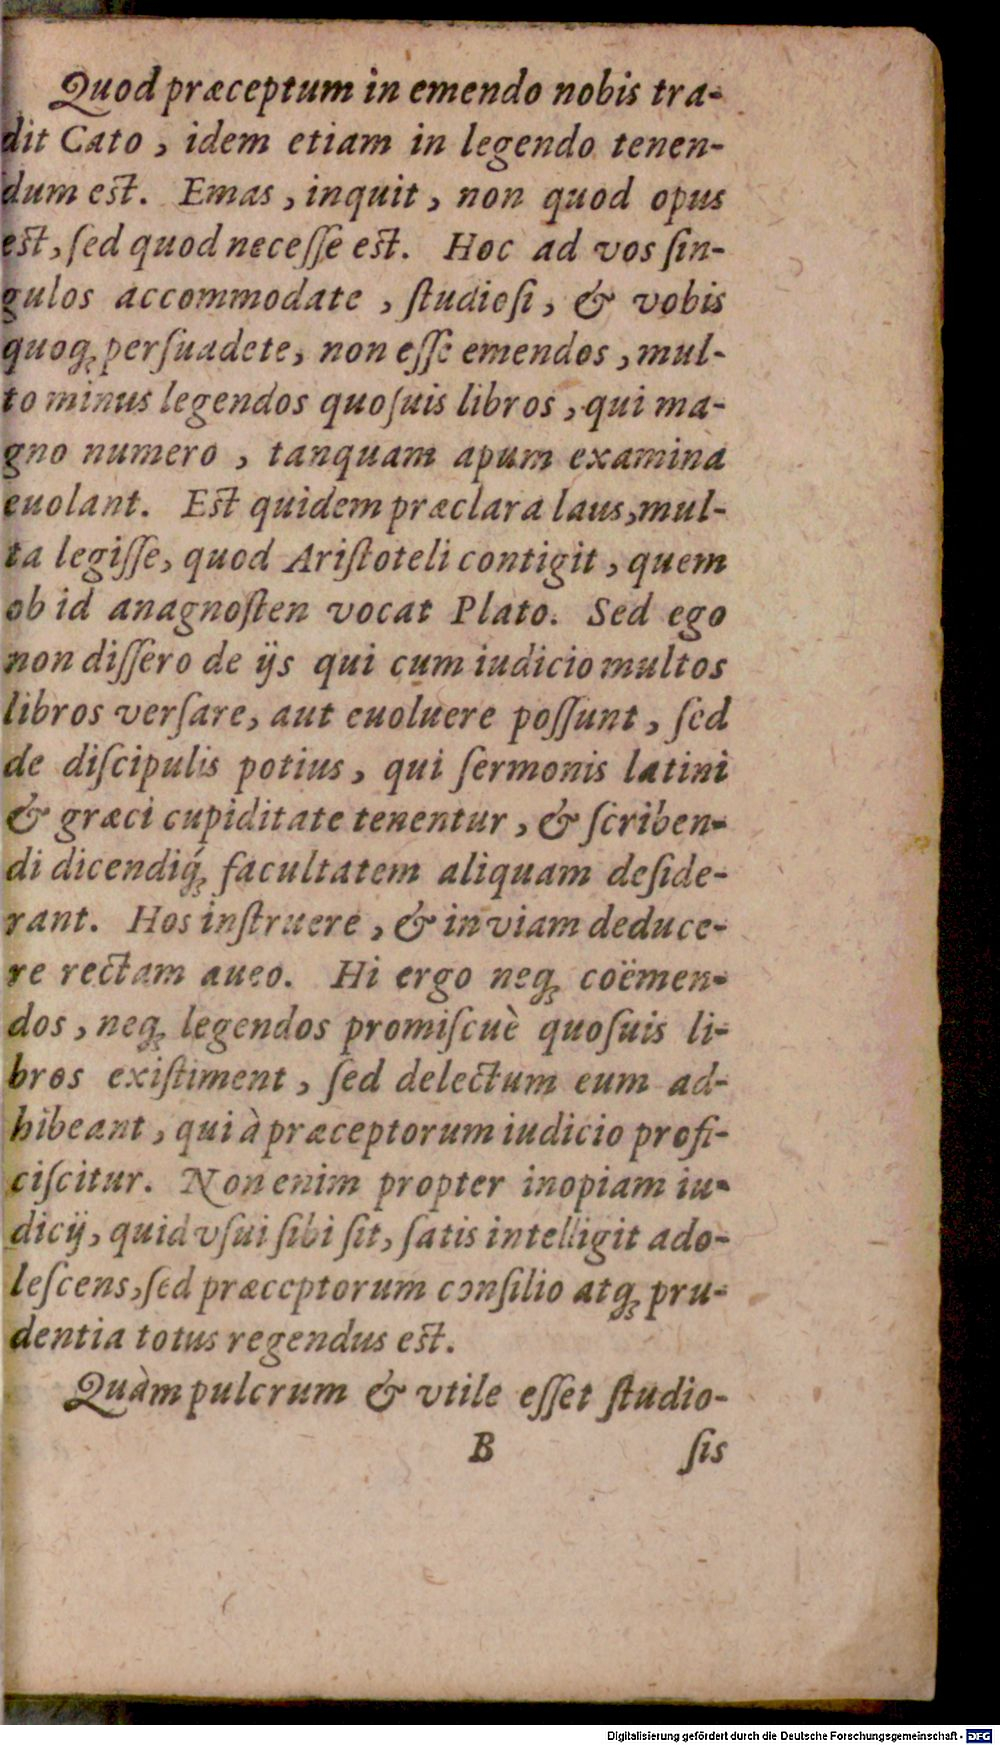 Quod præceptum in emendo nobis tra-
dit Cato, idem etiam in legendo tenen-
dum est. Emas, inquit, non quod opus
est, ſed quod neceſſe est. Hoc ad vos ſin-
gulos accommodate, ſtudioſi, & vobis
quoq; perſuadete, non eſſe emendos, mul-
to minus legendos quoſuis libros, qui ma-
gno numero, tanquam apum examina
euolant. Est quidem præclara laus, mul-
ta legiſſe, quod Ariſtoteli contigit, quem
ob id anagnoſten vocat Plato. Sed ego
non diſſero de ijs qui cum iudicio multos
libros verſare, aut euoluere poſſunt, ſed
de diſcipulis potius, qui ſermonis latini
& græci cupiditate tenentur, & ſcriben-
di dicendiq́; facultatem aliquam deſide-
rant. Hos inſtruere, & in viam deduce-
re rectam aueo. Hi ergo neq; coëmen-
dos, neq; legendos promiſcuè quoſuis li-
bros exiſtiment, ſed delectum eum ad-
hibeant, qui à præceptorum iudicio profi-
ciſcitur. Non enim propter inopiam iu-
dicij, quid vſui ſibi ſit, ſatis intelligit ado-
leſcens, ſed præceptorum conſilio atq; pru-
dentia totus regendus est.
Quàm pulcrum & vtile eſſet ſtudio-
B ſis
Digitalisierung gefördert durch die Deutsche Forschungsgemeinschaft - DFG